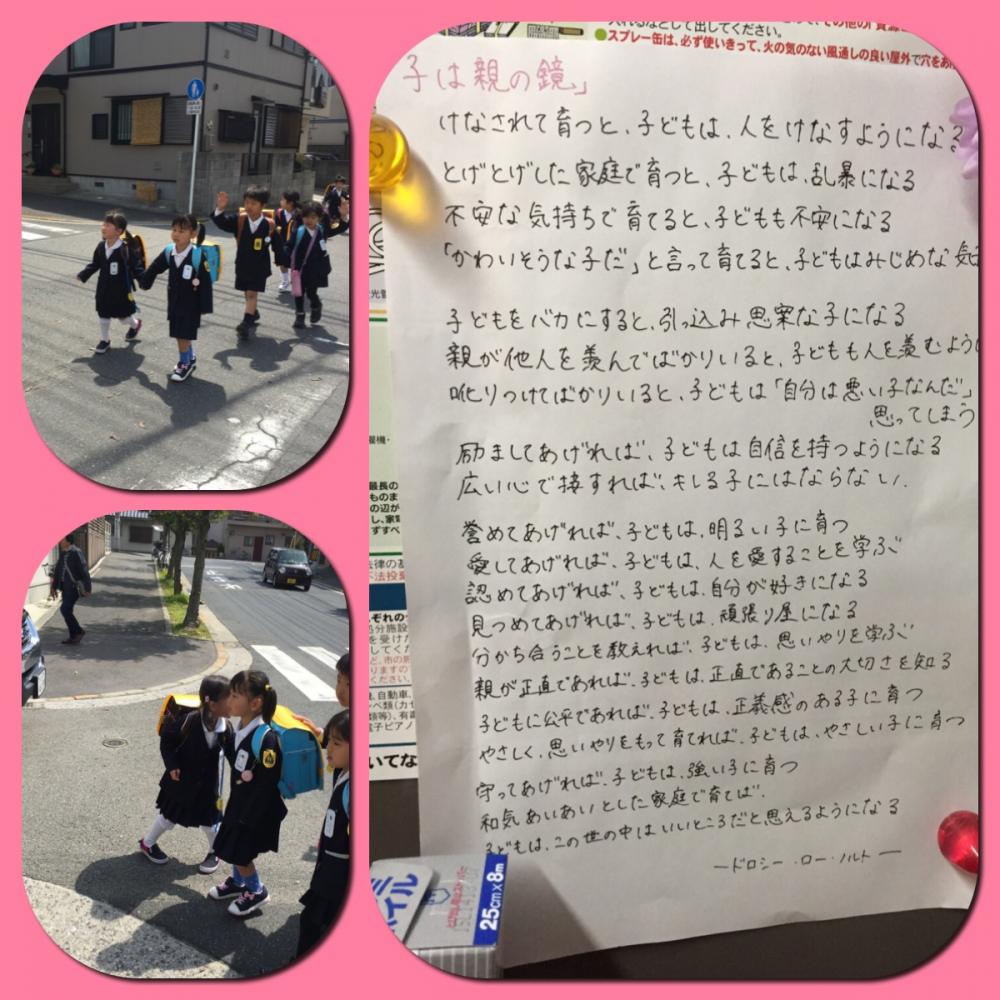 入れるなどして出してください。
●スプレー缶は、必ず使いきって、火の気のない風通しの良い屋外で穴をあ
子は親の鏡」
けなされて育つと、子どもは、人をけなすようになる
とげとげした家庭で育つと、子どもは、乱暴になる
不安な気持ちで育てると、子どもも不安になる
「かわいそうな子だ」と言って育てると、子どもはみじめな気
子どもをバカにすると、引っ込み思案な子になる
親が他人を羨んでばかりいると、子どもも人を羨むよう
叱りつけてばかりいると、子どもは「自分は悪い子なんだ」
思ってしまう
励ましてあげれば、子どもは自信を持つようになる
広い心で接すれば、キレる子にはならない。
誉めてあげれば、子どもは、明るい子に育つ
愛してあげれば、子どもは、人を愛することを学ぶ
認めてあげれば、子どもは、自分が好きになる
見つめてあげれば、子どもは、頑張り屋になる
分かち合うことを教えれば、子どもは、思いやりを学ぶ
親が正直であれば、子どもは、正直であることの大切さを知る
子どもに公平であれば、子どもは、正義感のある子に育つ
やさしく、思いやりをもって育てれば、子どもは、やさしい子に育つ
守ってあげれば、子どもは、強い子に育つ
和気あいあいとした家庭で育てば、
子どもは、この世の中はいいところだと思えるようになる
—ドロシー・ロー・ノルト—
最長の
ものま
の辺が
し、家
すべ
法律の
不法投棄
ぞれの
処分施設
を受けた
してくだ
ど、市の
りますの
ください
、自動車、
ベ類(カセ
類等)、有
電子ピアノ
いてな
イル
25cm×8m